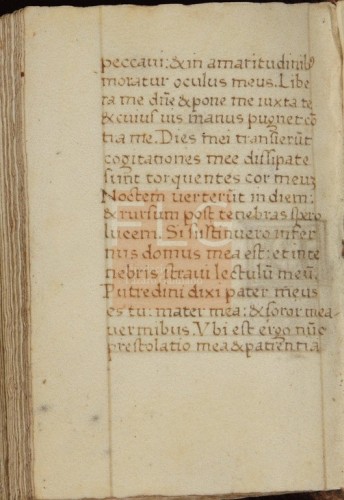 peccaui: & in amaritudinib⁹
moratur oculus meus. Libe
ra me dn̄e & pone me iuxta te
& cuius uis manus pugnet cō
tra me. Dies mei transierūt
cogitationes mee dissipate
sunt torquentes cor meuz
Noctem uerterūt in diem:
& rursum post tenebras spero
lucem. Si sustinuero infer
nus domus mea est: et in te
nebris straui lectulū meū.
Putredini dixi pater meus
es tu: mater mea: & soror mea
uermibus. Vbi est ergo nūc
prestolatio mea & patientia